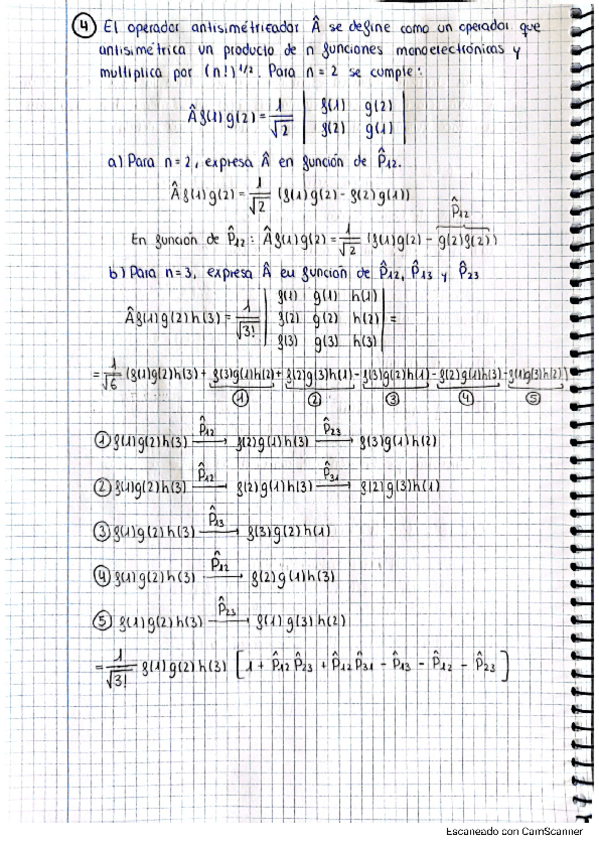 ④ El operador antisimetrizador Â se define como un operador que
antisimetrica un producto de n funciones monoelectrónicas y
multiplica por (n!)^1/2. Para n = 2 se cumple:
Â f(1) g(2) = 1/√2 | f(1) g(2) |
| f(2) g(1) |
a) Para n = 2, expresa Â en función de P̂12.
Â f(1) g(2) = 1/√2 (f(1) g(2) - f(2) g(1))
P̂12
En función de P̂12: Â f(1) g(2) = 1/√2 (f(1) g(2) - g(2) f(2))
b) Para n = 3, expresa Â en función de P̂12, P̂13 y P̂23
Â f(1) g(2) h(3) = 1/√3! | f(1) g(1) h(1) |
| f(2) g(2) h(2) | =
| f(3) g(3) h(3) |
= 1/√6 (f(1)g(2)h(3) + f(3)g(1)h(2) + f(2)g(3)h(1) - f(3)g(2)h(1) - f(2)g(1)h(3) - f(1)g(3)h(2))
① ② ③ ④ ⑤
① f(1)g(2)h(3) P̂12→ f(2)g(1)h(3) P̂23→ f(3)g(1)h(2)
② f(1)g(2)h(3) P̂12→ f(2)g(1)h(3) P̂31→ f(2)g(3)h(1)
③ f(1)g(2)h(3) P̂13→ f(3)g(2)h(1)
④ f(1)g(2)h(3) P̂12→ f(2)g(1)h(3)
⑤ f(1)g(2)h(3) P̂23→ f(1)g(3)h(2)
= 1/√3! f(1)g(2)h(3) [1 + P̂12 P̂23 + P̂12 P̂31 - P̂13 - P̂12 - P̂23]
Escaneado con CamScanner